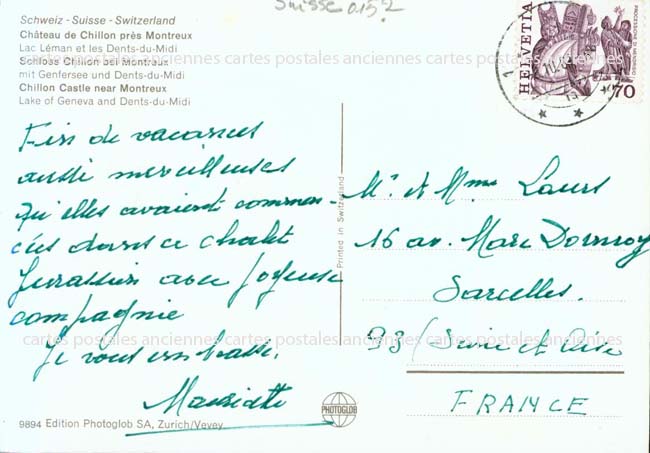 Suisse 0.15 2
Schweiz - Suisse - Switzerland
Château de Chillon près Montreux
Lac Léman et les Dents-du-Midi
Schloss Chillon bei Montreux
mit Genfersee und Dents-du-Midi
Chillon Castle near Montreux
Lake of Geneva and Dents-du-Midi
HELVETIA
PROCESSIONI DI MENDRISIO
70
cartes postales anciennes cartes postales anciennes cartes postales anciennes
Fin de vacances
aussi merveilleuses
qu'elles avaient commen-
cées dans ce chalet
Jurassien avec Joyeuse
compagnie
Je vous embrasse.
Printed in Switzerland
Mr et Mme Laurs
16 av. Marc Dormoy
Sarcelles.
93 (Seine et Oise
FRANCE
cartes postales anciennes cartes postales anciennes cartes postales anciennes
PHOTOGLOB
9894 Edition Photoglob SA, Zurich/Vevey